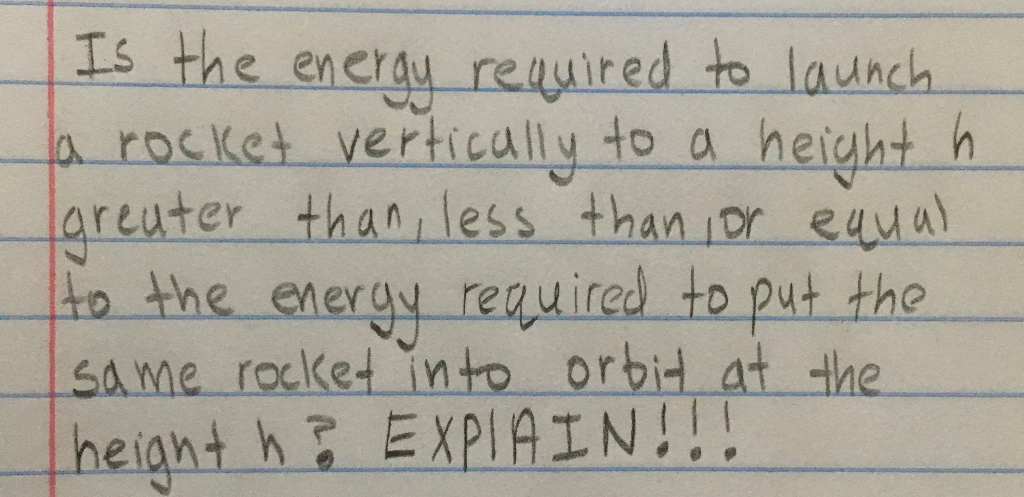 Is the energy required to launch
a rocket vertically to a height h
greater than, less than, or equal
to the energy required to put the
same rocket into orbit at the
height h? EXPlAIN!!!